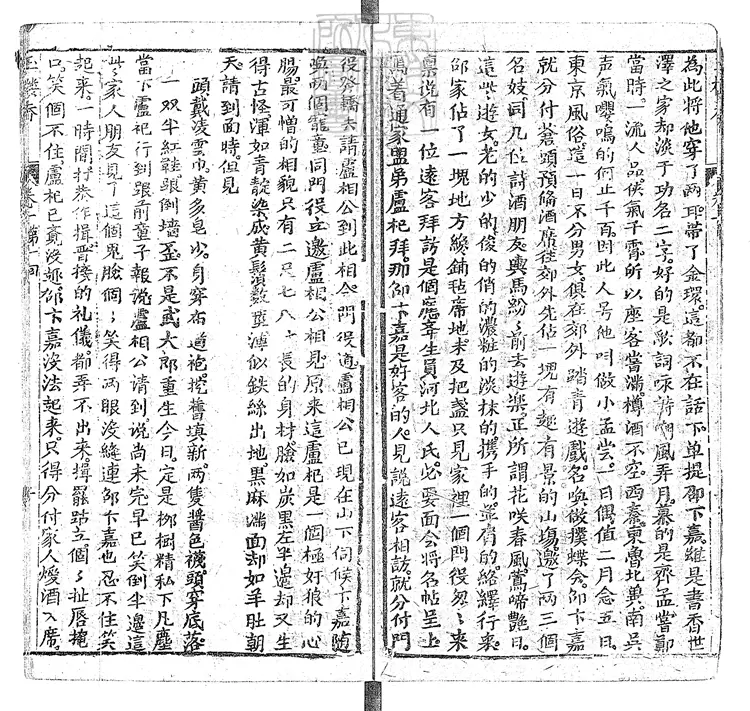 為此將他穿了兩耳帶了金環。這都不在話下。單提邵卞嘉。雖是書香世
澤之家却淡于功名二字。好的是歌詞咏詩嘲風弄月。慕的是齊孟嘗鄭
當時一流人品俠氣干霄所以座客嘗滿樽酒不空。西秦東魯北冀南吳
声氣嚶鳴的何止千百因此人号他叫做小孟嘗。一日偶值二月念五日。
東京風俗這一日不分男女俱在郊外踏青遊戲。名喚做撲蝶会。邵卞嘉
就分付蒼頭預俻酒席。往郊外先佔一塊有趣有景的山塲。邀了兩三個
名妓。同几位詩酒朋友輿馬紛〻前去遊樂。正所謂花咲春風鶯啼艷日。
這些遊女。老的少的俊的俏的濃粧的淡抹的携手的並肩的絡繹行來。
邵家佔了一塊地方纔鋪毡席地。未及把盞只見家裡一個門役忽〻來
禀說有一位遠客拜訪是個應斉生員河北人氏。必要面会將名帖呈上
寫着通家盟弟盧杞拜。那邵卞嘉是好客的人。見說遠客相訪。就分付門
役發轎去請盧相公到此相会。門役道盧相公已現在山下伺候卞嘉隨
喚兩個寵童同門役去邀盧相公相見。原來這盧杞是一個極奸狼的心
腸。最可憎的相貌只有二尺七八寸長的身材。臉如炭黑左半邉却又生
得古怪。渾如青靛染成黄鬚数莖薄似鉄絲出地。黑麻満面却如羊肚朝
天。請到面時。但見
頭戴凌雲巾。黄多皂少。身穿布道袍挖舊填新。兩隻醬色襪。頭穿底落
一双半紅鞋跟倒墻歪。不是武大郎重生今日。定是柳樹精私下凡塵
當下盧杞行到跟前童子報説盧相公請到说尚未完早已笑倒半邉這
些家人朋友見了這個鬼臉個〻笑得兩眼没縫連邵卞嘉也忍不住笑
起來。一時間打恭作揖晋接的礼儀。都弄不出來。揖罷跕立個〻扯唇掩
口笑個不住。盧杞已竟没趣。邵卞嘉没法起來。只得分付家人煖酒入席。